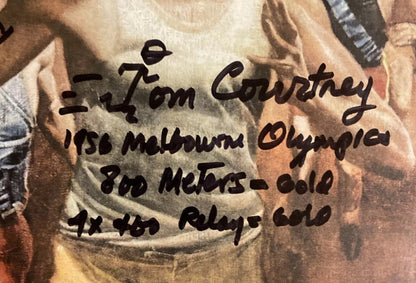 Tom Courtney
1956 Melbourne Olympics
800 Meters = Gold
4x400 Relay = Gold